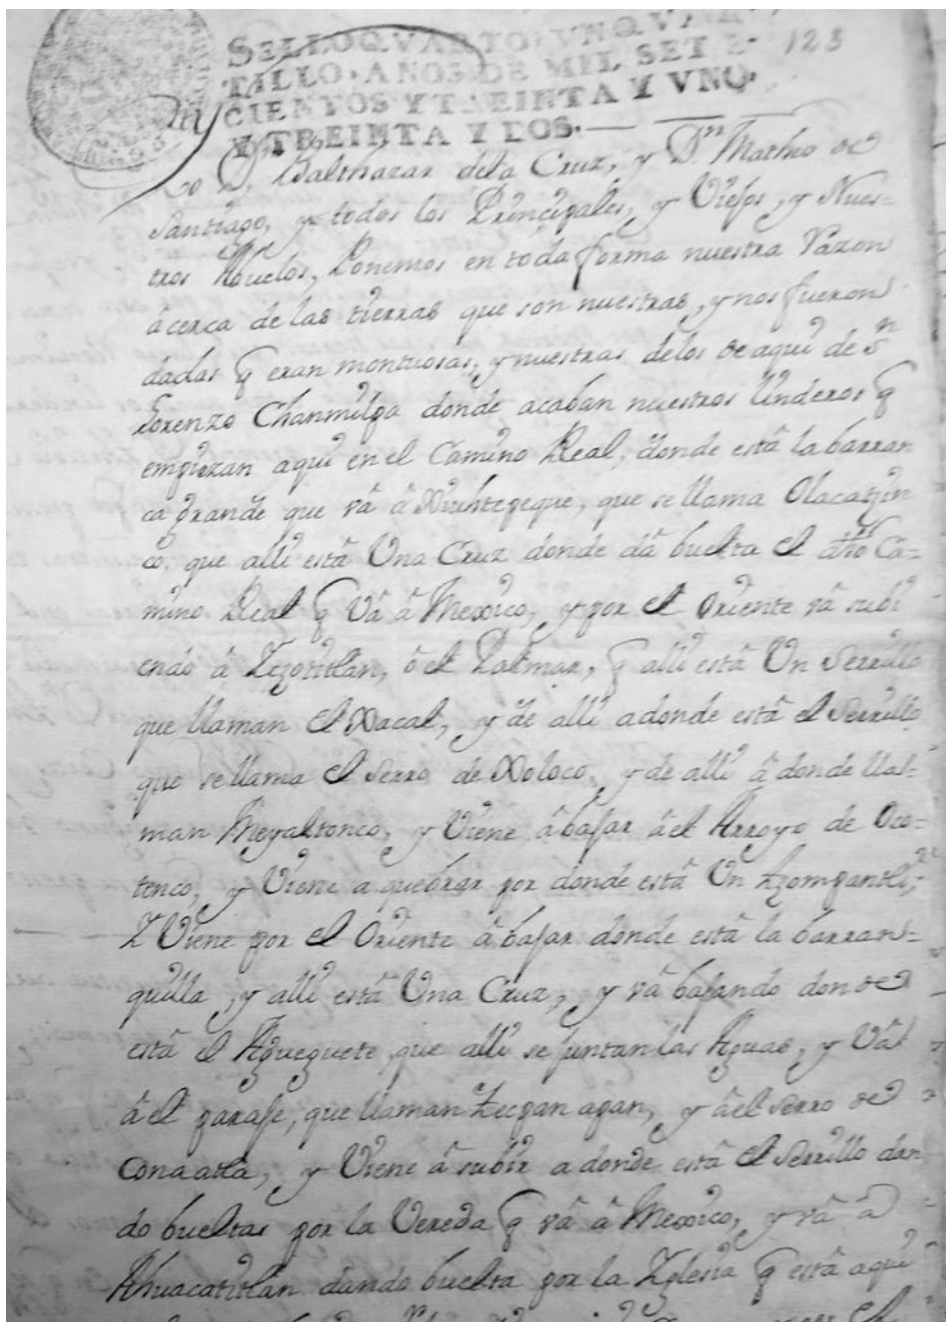 SELLO QVARTO, VN QVAR
TILLO, AÑOS DE MIL SETE-
CIENTOS Y TREINTA Y VNO.
Y TREINTA Y DOS.
123
Yo Dn Balthazar dela Cruz, y Dn Matheo de
Santiago, y todos los Principales, y Viejos, y Nues=
tros Abuelos, Ponemos en toda forma nuestra Razon
âcerca de las tierras que son nuestras, y nos fueron
dadas q eran montuosas, y nuestras delos de aqui de Sn
Lorenzo Chanmilpa donde acaban nuestros linderos q
empiezan aqui en el Camino Real, donde està la barran
ca grande que vâ â Xiuhtepeque, que se llama Olacatzin
co, que alli està Una Cruz donde dâ buelta el dho Ca=
mino Real q Vâ â Mexico, y por el Oriente vâ subi
endo â Tezotitlàn, ô el Palmar, q alli està Un Serrillo
que llaman el Xacal, y de alli adonde està el Serrillo
que se llama el Serro de Xoloco, y de alli â donde lla=
man Meyaltonco, y Viene âbajar âel Arroyo de Oco=
tenco, y Viene a quebrar por donde està Un tzompantli,
Y Viene por el Oriente âbajar donde està la barran=
quilla, y alli està Una Cruz, y vâ bajando donde
està el Agueguete que alli se juntan las Aguas, y Vâ
âel paraje, que llaman Tecpan apan, y âel Serro de
Conaatla, y Viene âsubir a donde està el Serrillo dan
do bueltas por la Vereda q vâ â Mexico, y vâ â
Ahuacatitlàn dando buelta por la Yglesia q està aqui